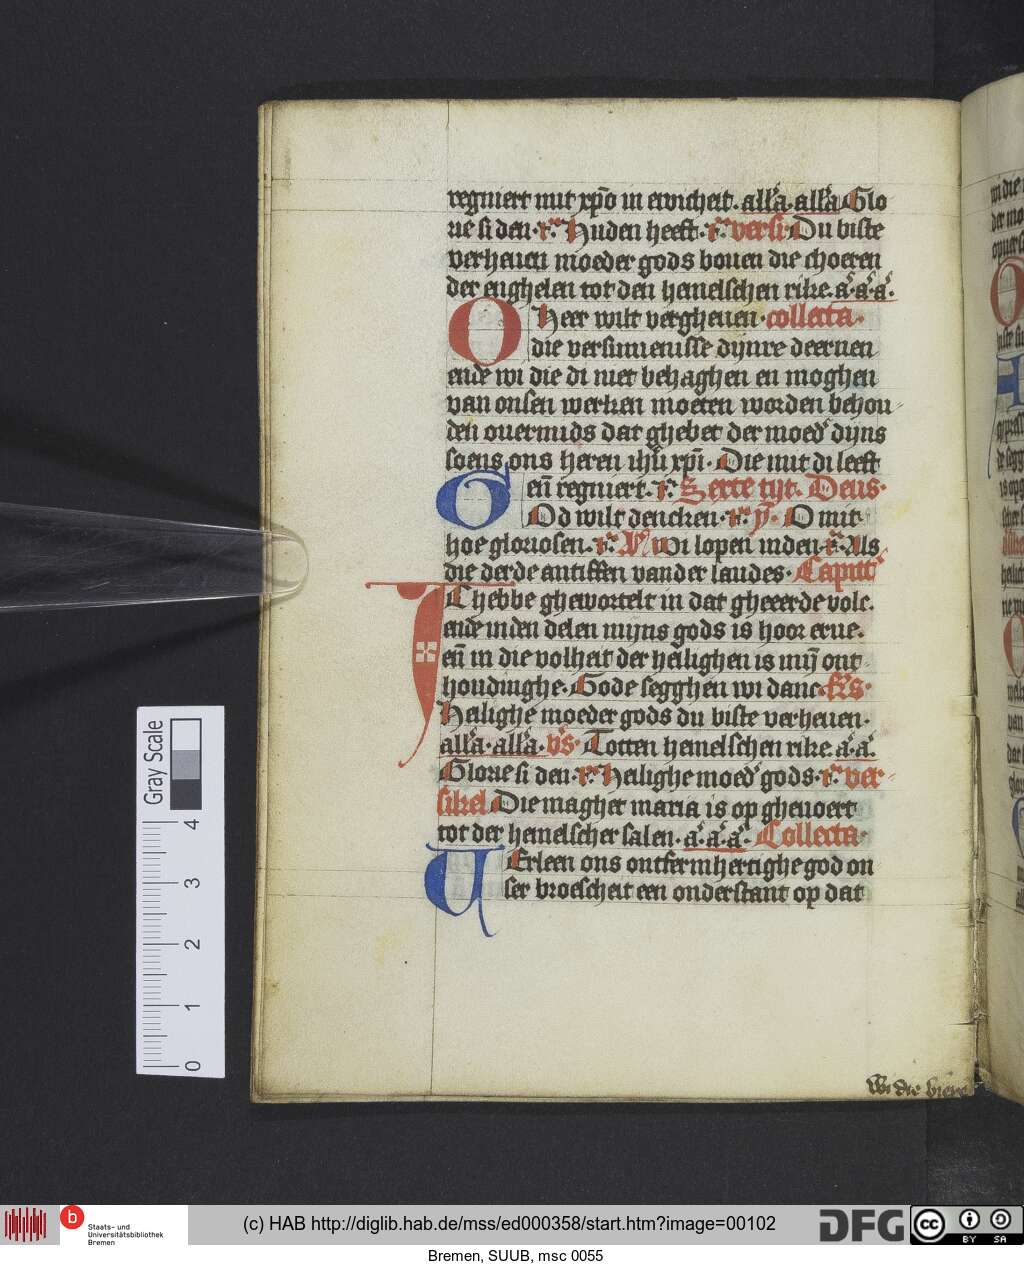 regniert mit xp̄o in ewicheit. all'a. all'a Glo
rie si den. r̄. Huden heeft. r̄. versi. Du biste
verheuen moeder gods bouen die choeren
der enghelen tot den hemelschen rike. a. a. a.
O Heer wilt vergheuen. collecta.
die versumenisse dijnre deernen
ende wi die di niet behaghen en moghen
van onsen werken moeten worden behou
den ouermids dat ghebet der moed' dijns
soens ons heren ih̄u xp̄i. Die mit di leeft
en̄ regniert. r̄. Sexte tijt. Deus.
God wilt dencken. r̄. ym̄. O mit
hoe gloriosen. r̄. An̄ Wi lopen inden. r̄. Als
die derde antiffen vander laudes. Capitt'
Ic hebbe ghewortelt in dat gheeerde volc.
ende inden delen mijns gods is hoor erue.
en̄ in die volheit der heilighen is mij ont
houdinghe. Gode segghen wi danc. R's.
Heilighe moeder gods du biste verheuen.
all'a. all'a. v's. Totten hemelschen rike. a. a.
Glorie si den. r̄. Heilighe moed' gods. r̄. ver
sikel. Die maghet maria is op gheuoert
tot der hemelscher salen. a. a. a. Collecta.
Verleen ons ontfermhertighe god on
ser broescheit een onderstant op dat
Wi die biere
Gray Scale
4
3
2
1
0
b
Staats- und
Universitätsbibliothek
Bremen
(c) HAB http://diglib.hab.de/mss/ed000358/start.htm?image=00102
DFG
cc BY SA
Bremen, SUUB, msc 0055